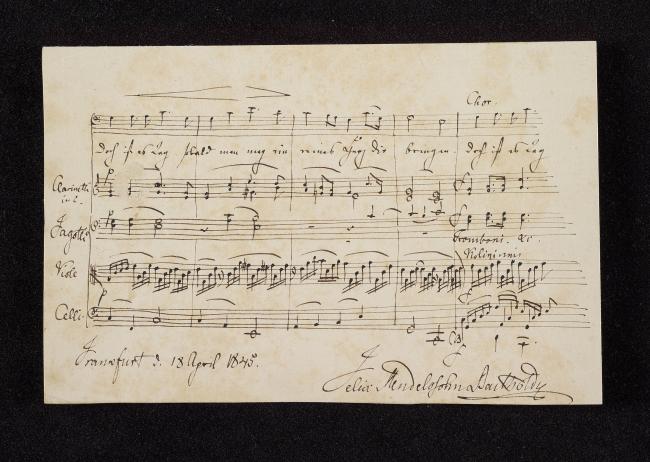 Chor.
doch ist es Tag sobald man nur ein reines Herz dir bringen doch ist es Tag
Clarinetti
in C.
Fagotti
Tromboni. &c.
Violini unis
Viole
Celli
Frankfurt d. 18 April 1845.
Felix Mendelssohn Bartholdy